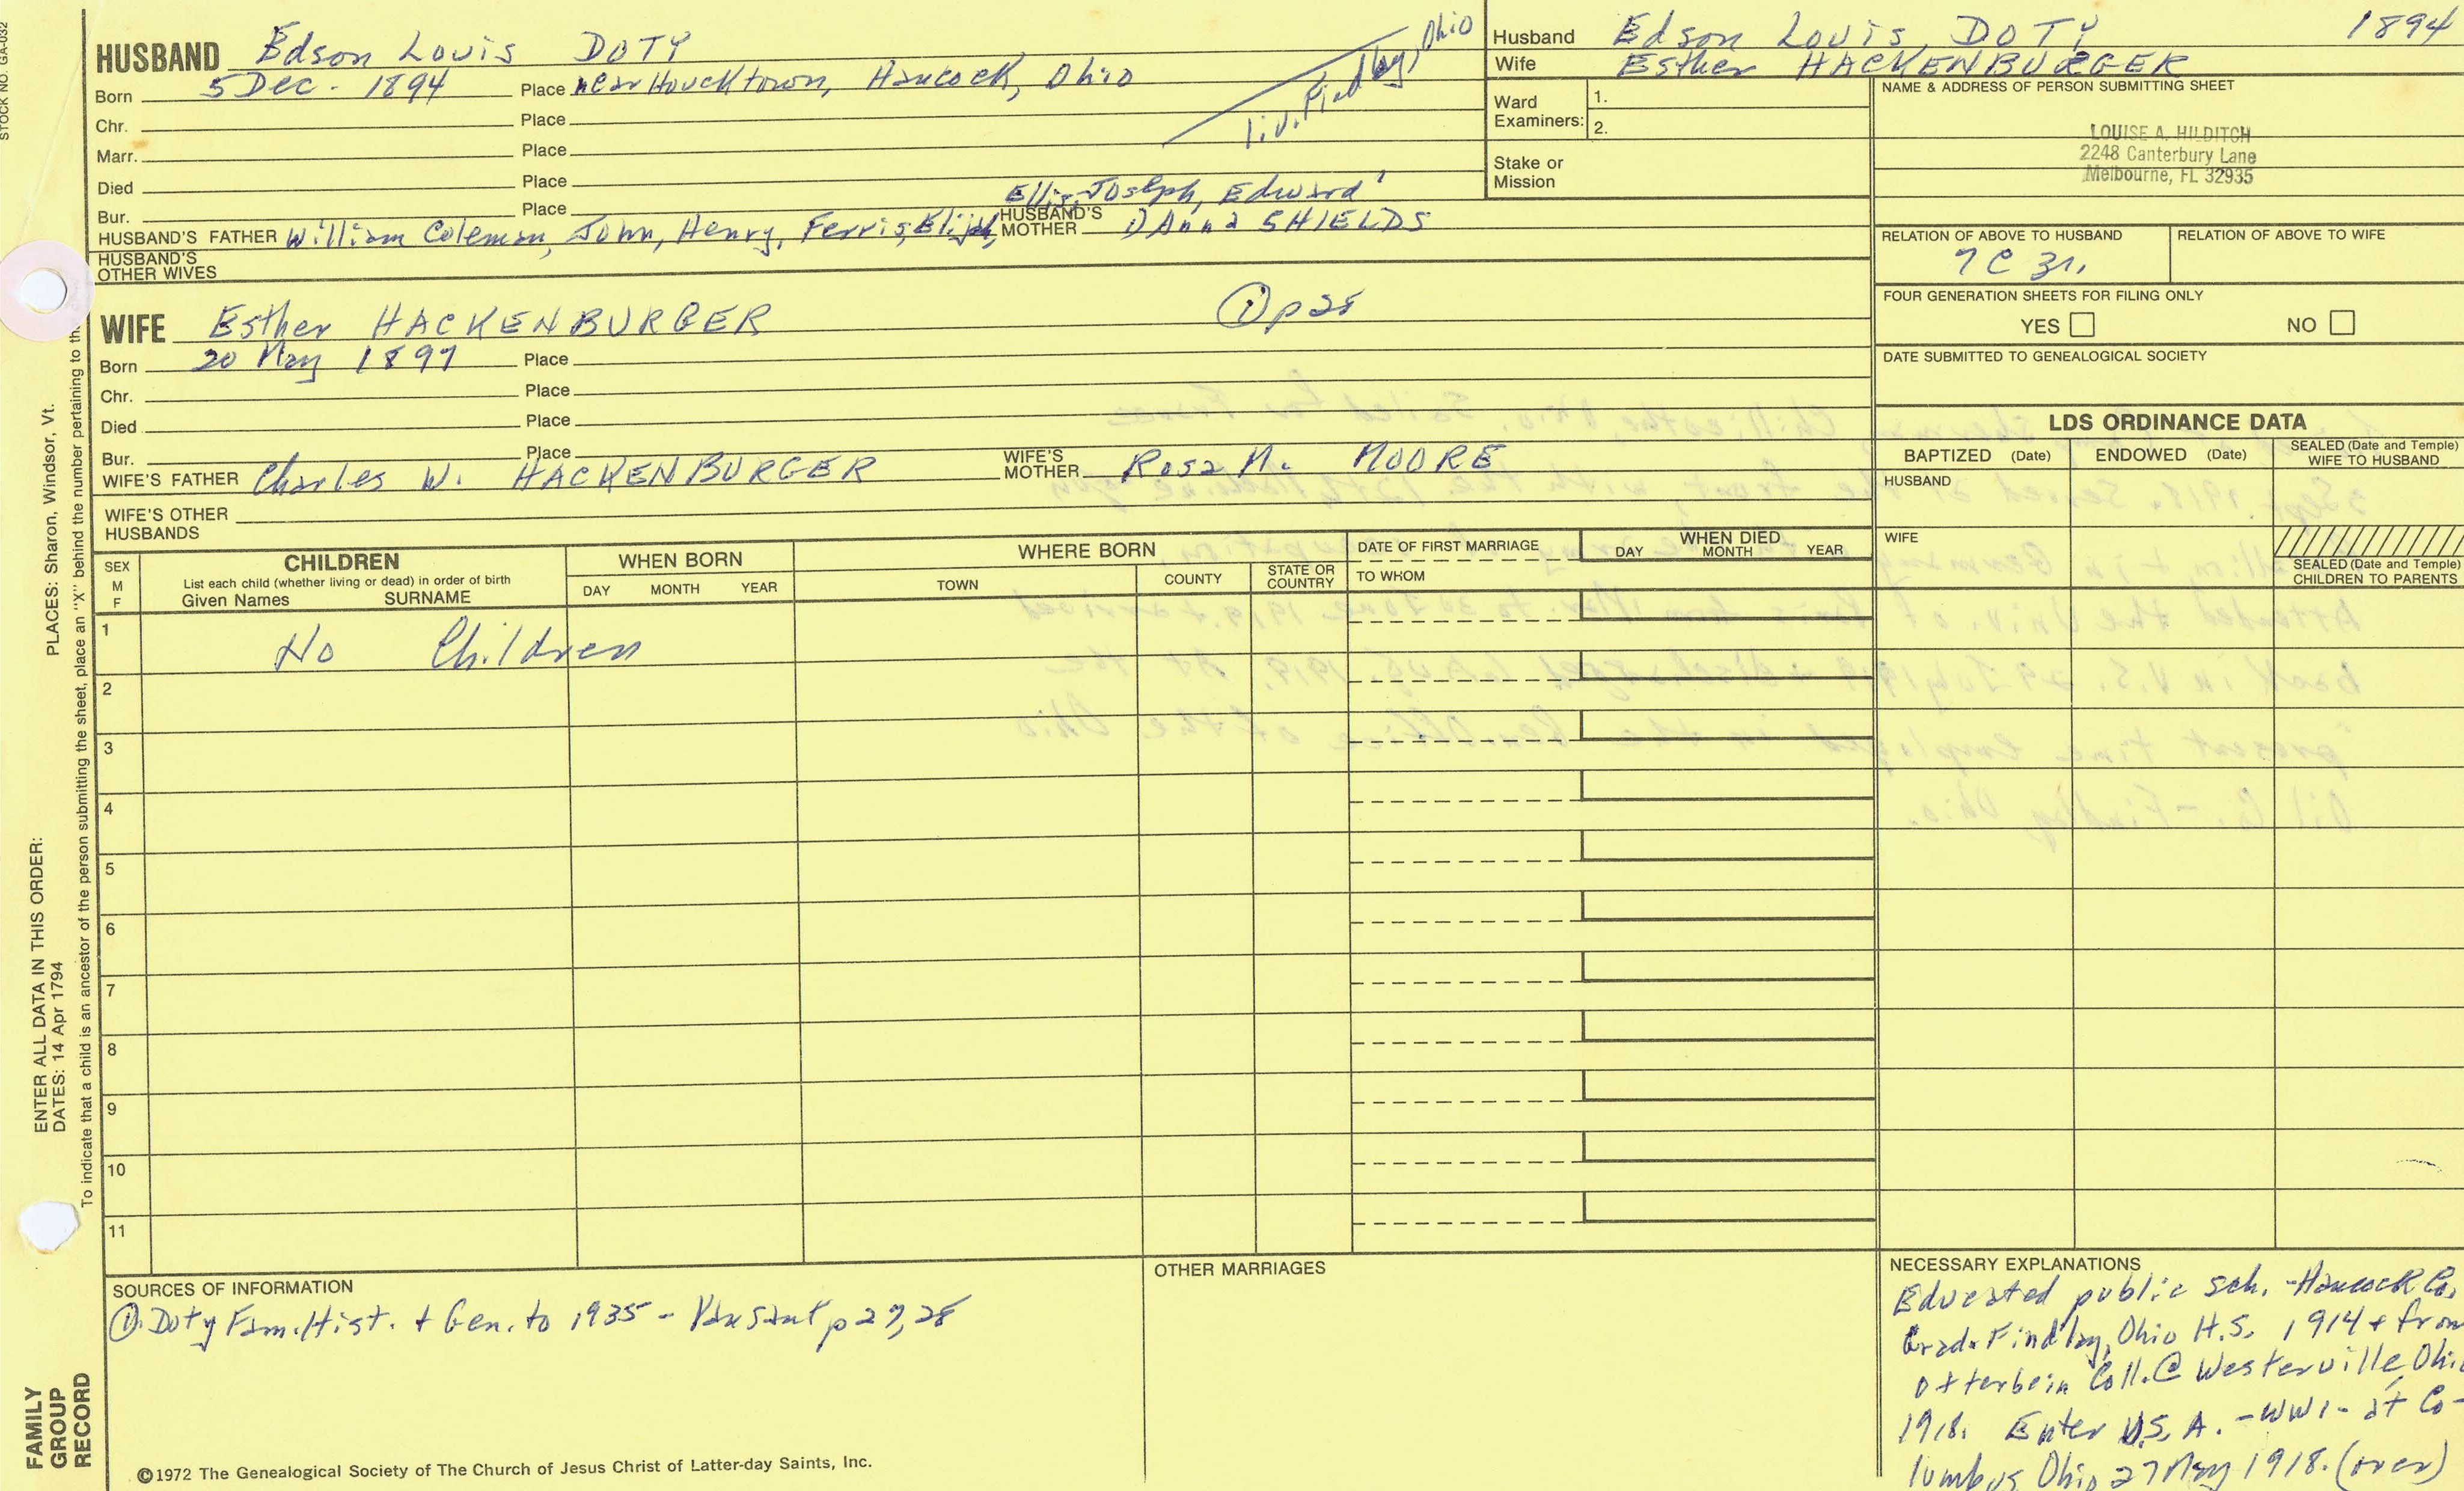 STOCK NO. GA-032
HUSBAND Edson Louis DOTY
Born 5 Dec. 1894 Place near Houcktown, Hancock, Ohio
liv. Findlay, Ohio
Chr. Place
Marr. Place
Died Place
Bur. Place
Ellis, Joseph, Edward
HUSBAND'S FATHER William Coleman, John, Henry, Ferris, Elijah, HUSBAND'S MOTHER 1) Anna SHIELDS
HUSBAND'S OTHER WIVES
WIFE Esther HACKENBURGER
① p28
Born 20 May 1897 Place
Chr. Place
Died Place
Bur. Place
WIFE'S FATHER Charles W. HACKENBURGER WIFE'S MOTHER Rosa M. MOORE
WIFE'S OTHER HUSBANDS
Husband Edson Louis DOTY 1894
Wife Esther HACKENBURGER
Ward Examiners: 1.
2.
Stake or Mission
NAME & ADDRESS OF PERSON SUBMITTING SHEET
LOUISE A. HILDITCH
2248 Canterbury Lane
Melbourne, FL 32935
RELATION OF ABOVE TO HUSBAND RELATION OF ABOVE TO WIFE
7C 3r.
FOUR GENERATION SHEETS FOR FILING ONLY
YES NO
DATE SUBMITTED TO GENEALOGICAL SOCIETY
LDS ORDINANCE DATA
BAPTIZED (Date) ENDOWED (Date) SEALED (Date and Temple) WIFE TO HUSBAND
HUSBAND
WIFE
SEALED (Date and Temple) CHILDREN TO PARENTS
SEX M F
CHILDREN
List each child (whether living or dead) in order of birth
Given Names SURNAME
WHEN BORN
DAY MONTH YEAR
WHERE BORN
TOWN COUNTY STATE OR COUNTRY
DATE OF FIRST MARRIAGE
TO WHOM
WHEN DIED
DAY MONTH YEAR
1 No Children
2
3
4
5
6
7
8
9
10
11
SOURCES OF INFORMATION
① Doty Fam. Hist. + Gen. to 1935 - Van Sant p 27, 28
OTHER MARRIAGES
NECESSARY EXPLANATIONS
Educated public sch. - Hancock Co.
Grad. Findlay, Ohio H.S. 1914 + from
Otterbein Coll. @ Westerville, Ohi
1918. Enter U.S. A. - WW1 - at Co-
lumbus, Ohio 27 May 1918. (over)
©1972 The Genealogical Society of The Church of Jesus Christ of Latter-day Saints, Inc.
FAMILY GROUP RECORD
ENTER ALL DATA IN THIS ORDER:
DATES: 14 Apr 1794
PLACES: Sharon, Windsor, Vt.
To indicate that a child is an ancestor of the person submitting the sheet, place an "X" behind the number pertaining to th